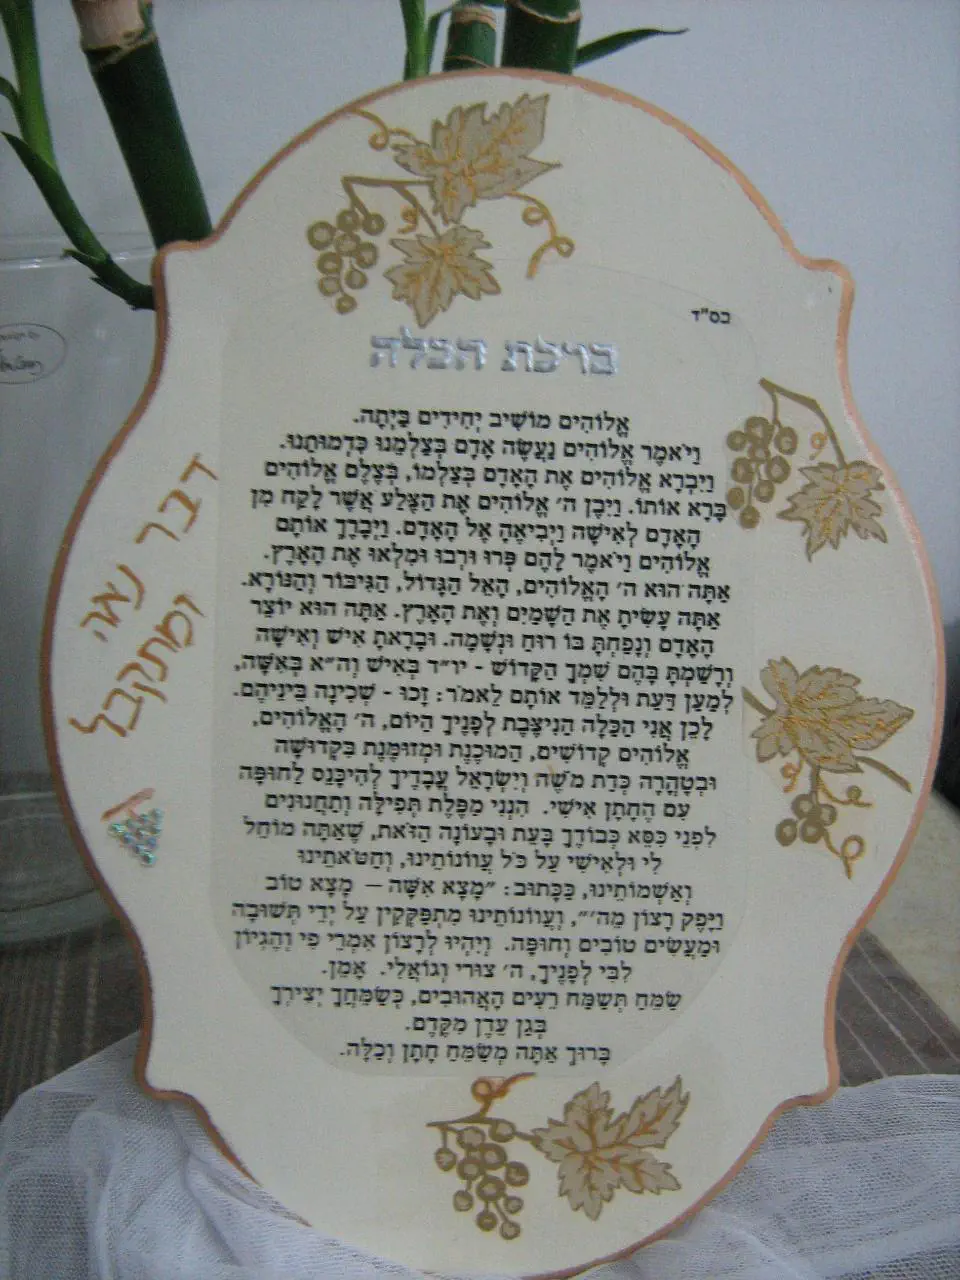 בס"ד
ברכת הכלה
אֱלוֹהִים מוֹשִׁיב יְחִידִים בַּיְתָה.
וַיֹאמֶר אֱלוֹהִים נַעֲשֶׂה אָדָם בְּצַלְמֵנוּ כִּדְמוּתֵנוּ.
וַיִּבְרָא אֱלוֹהִים אֶת הָאָדָם בְּצַלְמוֹ, בְּצֶלֶם אֱלוֹהִים
בָּרָא אוֹתוֹ. וַיִּבֶן ה׳ אֱלוֹהִים אֶת הַצֶּלַע אֲשֶׁר לָקַח מִן
הָאָדָם לְאִישָׁה וַיְבִיאֶהָ אֶל הָאָדָם. וַיְבָרֶךְ אוֹתָם
אֱלוֹהִים וַיֹאמֶר לָהֶם פְּרוּ וּרְבוּ וּמִלְאוּ אֶת הָאָרֶץ.
אַתָּה הוּא ה׳ הָאֱלוֹהִים, הָאֵל הַגָּדוֹל, הַגִּיבּוֹר וְהַנּוֹרָא.
אַתָּה עָשִׂיתָ אֶת הַשָּׁמַיִם וְאֶת הָאָרֶץ. אַתָּה הוּא יוֹצֵר
הָאָדָם וְנָפַחְתָּ בּוֹ רוּחַ וּנְשָׁמָה. וּבָרָאתָ אִישׁ וְאִישָׁה
וְרָשַׁמְתָּ בָּהֶם שִׁמְךָ הַקָּדוֹשׁ - יו״ד בְּאִישׁ וְה״א בְּאִשָּׁה,
לְמַעַן דַּעַת וּלְלַמֵּד אוֹתָם לֵאמֹר: זָכוּ - שְׁכִינָה בֵּינֵיהֶם.
לָכֵן אֲנִי הַכַּלָּה הַנִּיצֶּבֶת לְפָנֶיךָ הַיּוֹם, ה׳ הָאֱלוֹהִים,
אֱלוֹהִים קְדוֹשִׁים, הַמּוּכֶנֶת וּמְזוּמֶּנֶת בִּקְדוּשָּׁה
וּבְטָהֳרָה כְּדַת מֹשֶׁה וְיִשְׂרָאֵל עֲבָדֶיךָ לְהִיכָּנֵס לַחוּפָּה
עִם הֶחָתָן אִישִׁי. הִנְנִי מַפֶּלֶת תְּפִילָּה וְתַחֲנוּנִים
לִפְנֵי כִּסֵּא כְּבוֹדֶךָ בָּעֵת וּבָעוֹנָה הַזֹּאת, שֶׁאַתָּה מוֹחֵל
לִי וּלְאִישִׁי עַל כֹּל עֲווֹנוֹתֵינוּ, וְחַטֹּאתֵינוּ
וְאַשְׁמוֹתֵינוּ, כַּכָּתוּב: ״מָצָא אִשָּׁה – מָצָא טוֹב
וַיָּפֶק רָצוֹן מֵה׳״, וַעֲווֹנוֹתֵינוּ מִתְפַּקְּקִין עַל יְדֵי תְּשׁוּבָה
וּמַעֲשִׂים טוֹבִים וְחוּפָּה. וְיִהְיוּ לְרָצוֹן אִמְרֵי פִי וְהֶגְיוֹן
לִבִּי לְפָנֶיךָ, ה׳ צוּרִי וְגוֹאֲלִי. אָמֵן.
שַׂמֵּחַ תְּשַׂמַּח רֵעִים הָאֲהוּבִים, כְּשַׂמֵּחֲךָ יְצִירְךָ
בְּגַן עֵדֶן מִקֶּדֶם.
בָּרוּךְ אַתָּה מְשַׂמֵּחַ חָתָן וְכַלָּה.
דבר נאה
ומתקבל